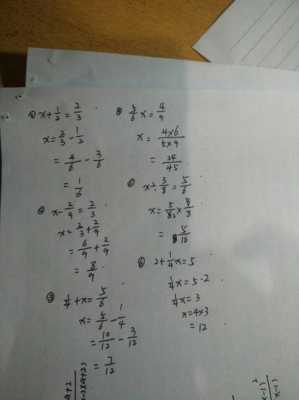 ① x+1/2=2/3
x=2/3-1/2
=4/6-3/6
=1/6
② x-2/9=2/3
x=2/3+2/9
=6/9+2/9
=8/9
③ 1/4+x=5/6
x=5/6-1/4
=10/12-3/12
=7/12
④ 5/6x=4/9
x=4×6/5×9
=24/45
⑤ x÷3/8=5/6
=5/16
⑥ 2+1/4x=5
1/4x=5-2
1/4x=3
x=4×3
=12